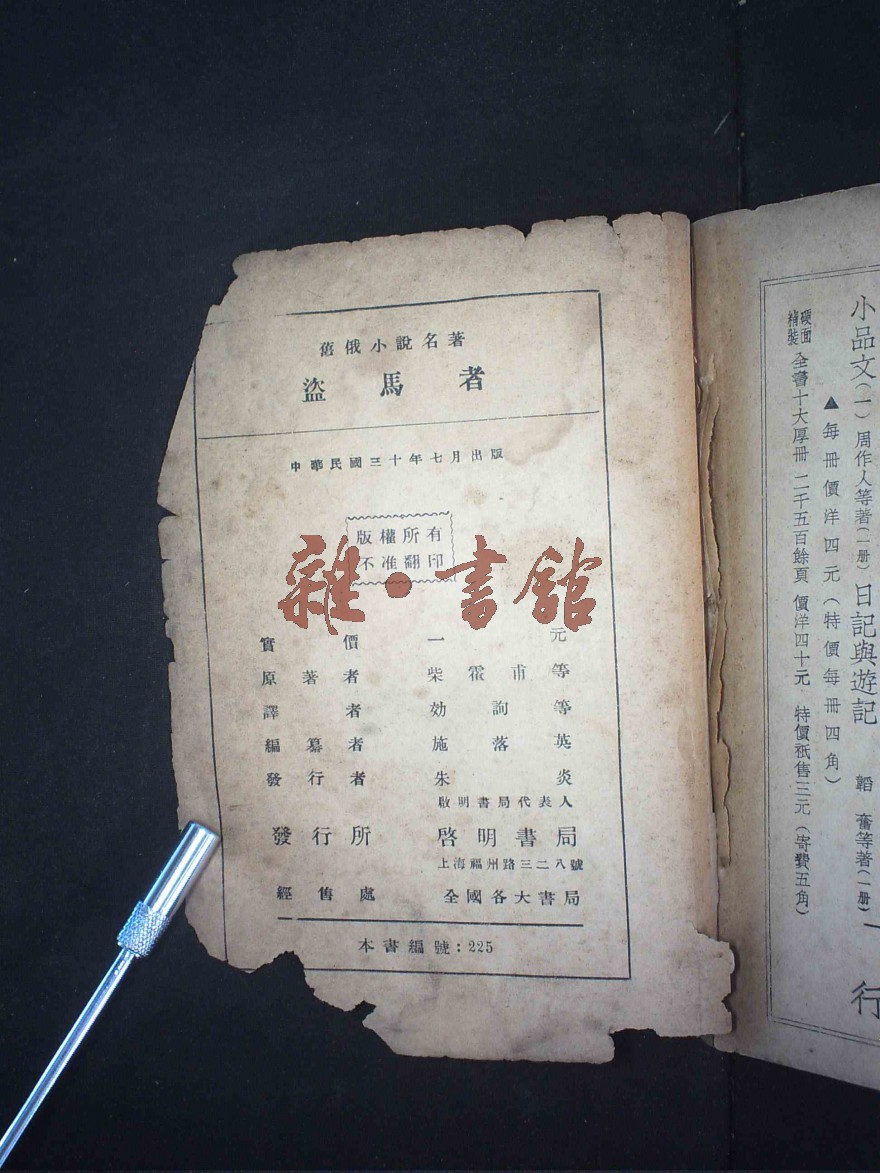 舊俄小說名著
盜馬者
中華民國三十年七月出版
版權所有
不准翻印
雜·書舘
實價 一元
原著者 柴霍甫等
譯者 効詢等
編纂者 施落英
發行者 朱炎
啟明書局代表人
發行所 啓明書局
上海福州路三二八號
經售處 全國各大書局
本書編號：225
小品文(一) 周作人等著(一册) 日記與遊記 韜奮等著(一册)
行
▲每冊價洋四元(特價每冊四角)
硬面
精裝
全書十大厚冊 二千五百餘頁 價洋四十元 特價祇售三元(寄費五角)